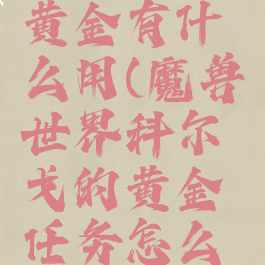 黄金有什
么用(魔兽
世界科尔
戈的黄金
任务怎么